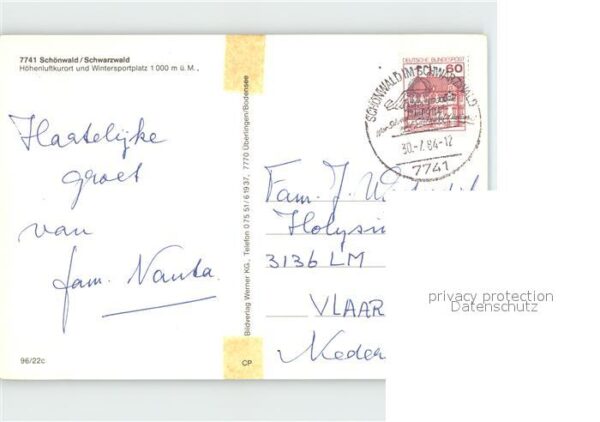 7741 Schönwald/Schwarzwald
Höhenluftkurort und Wintersportplatz 1000 m ü. M.,
Haatelijke
groet
van
fam. Nanta.
96/22c
Bildverlag Werner KG., Telefon 0 75 51/6 19 37, 7770 Überlingen/Bodensee
CP
DEUTSCHE BUNDESPOST
60
SCHÖNWALD IM SCHWARZWALD
30.-7.84-12
7741
Fam. J.
Holysin
3136 LM
VLAAR
Neder
privacy protection
Datenschutz